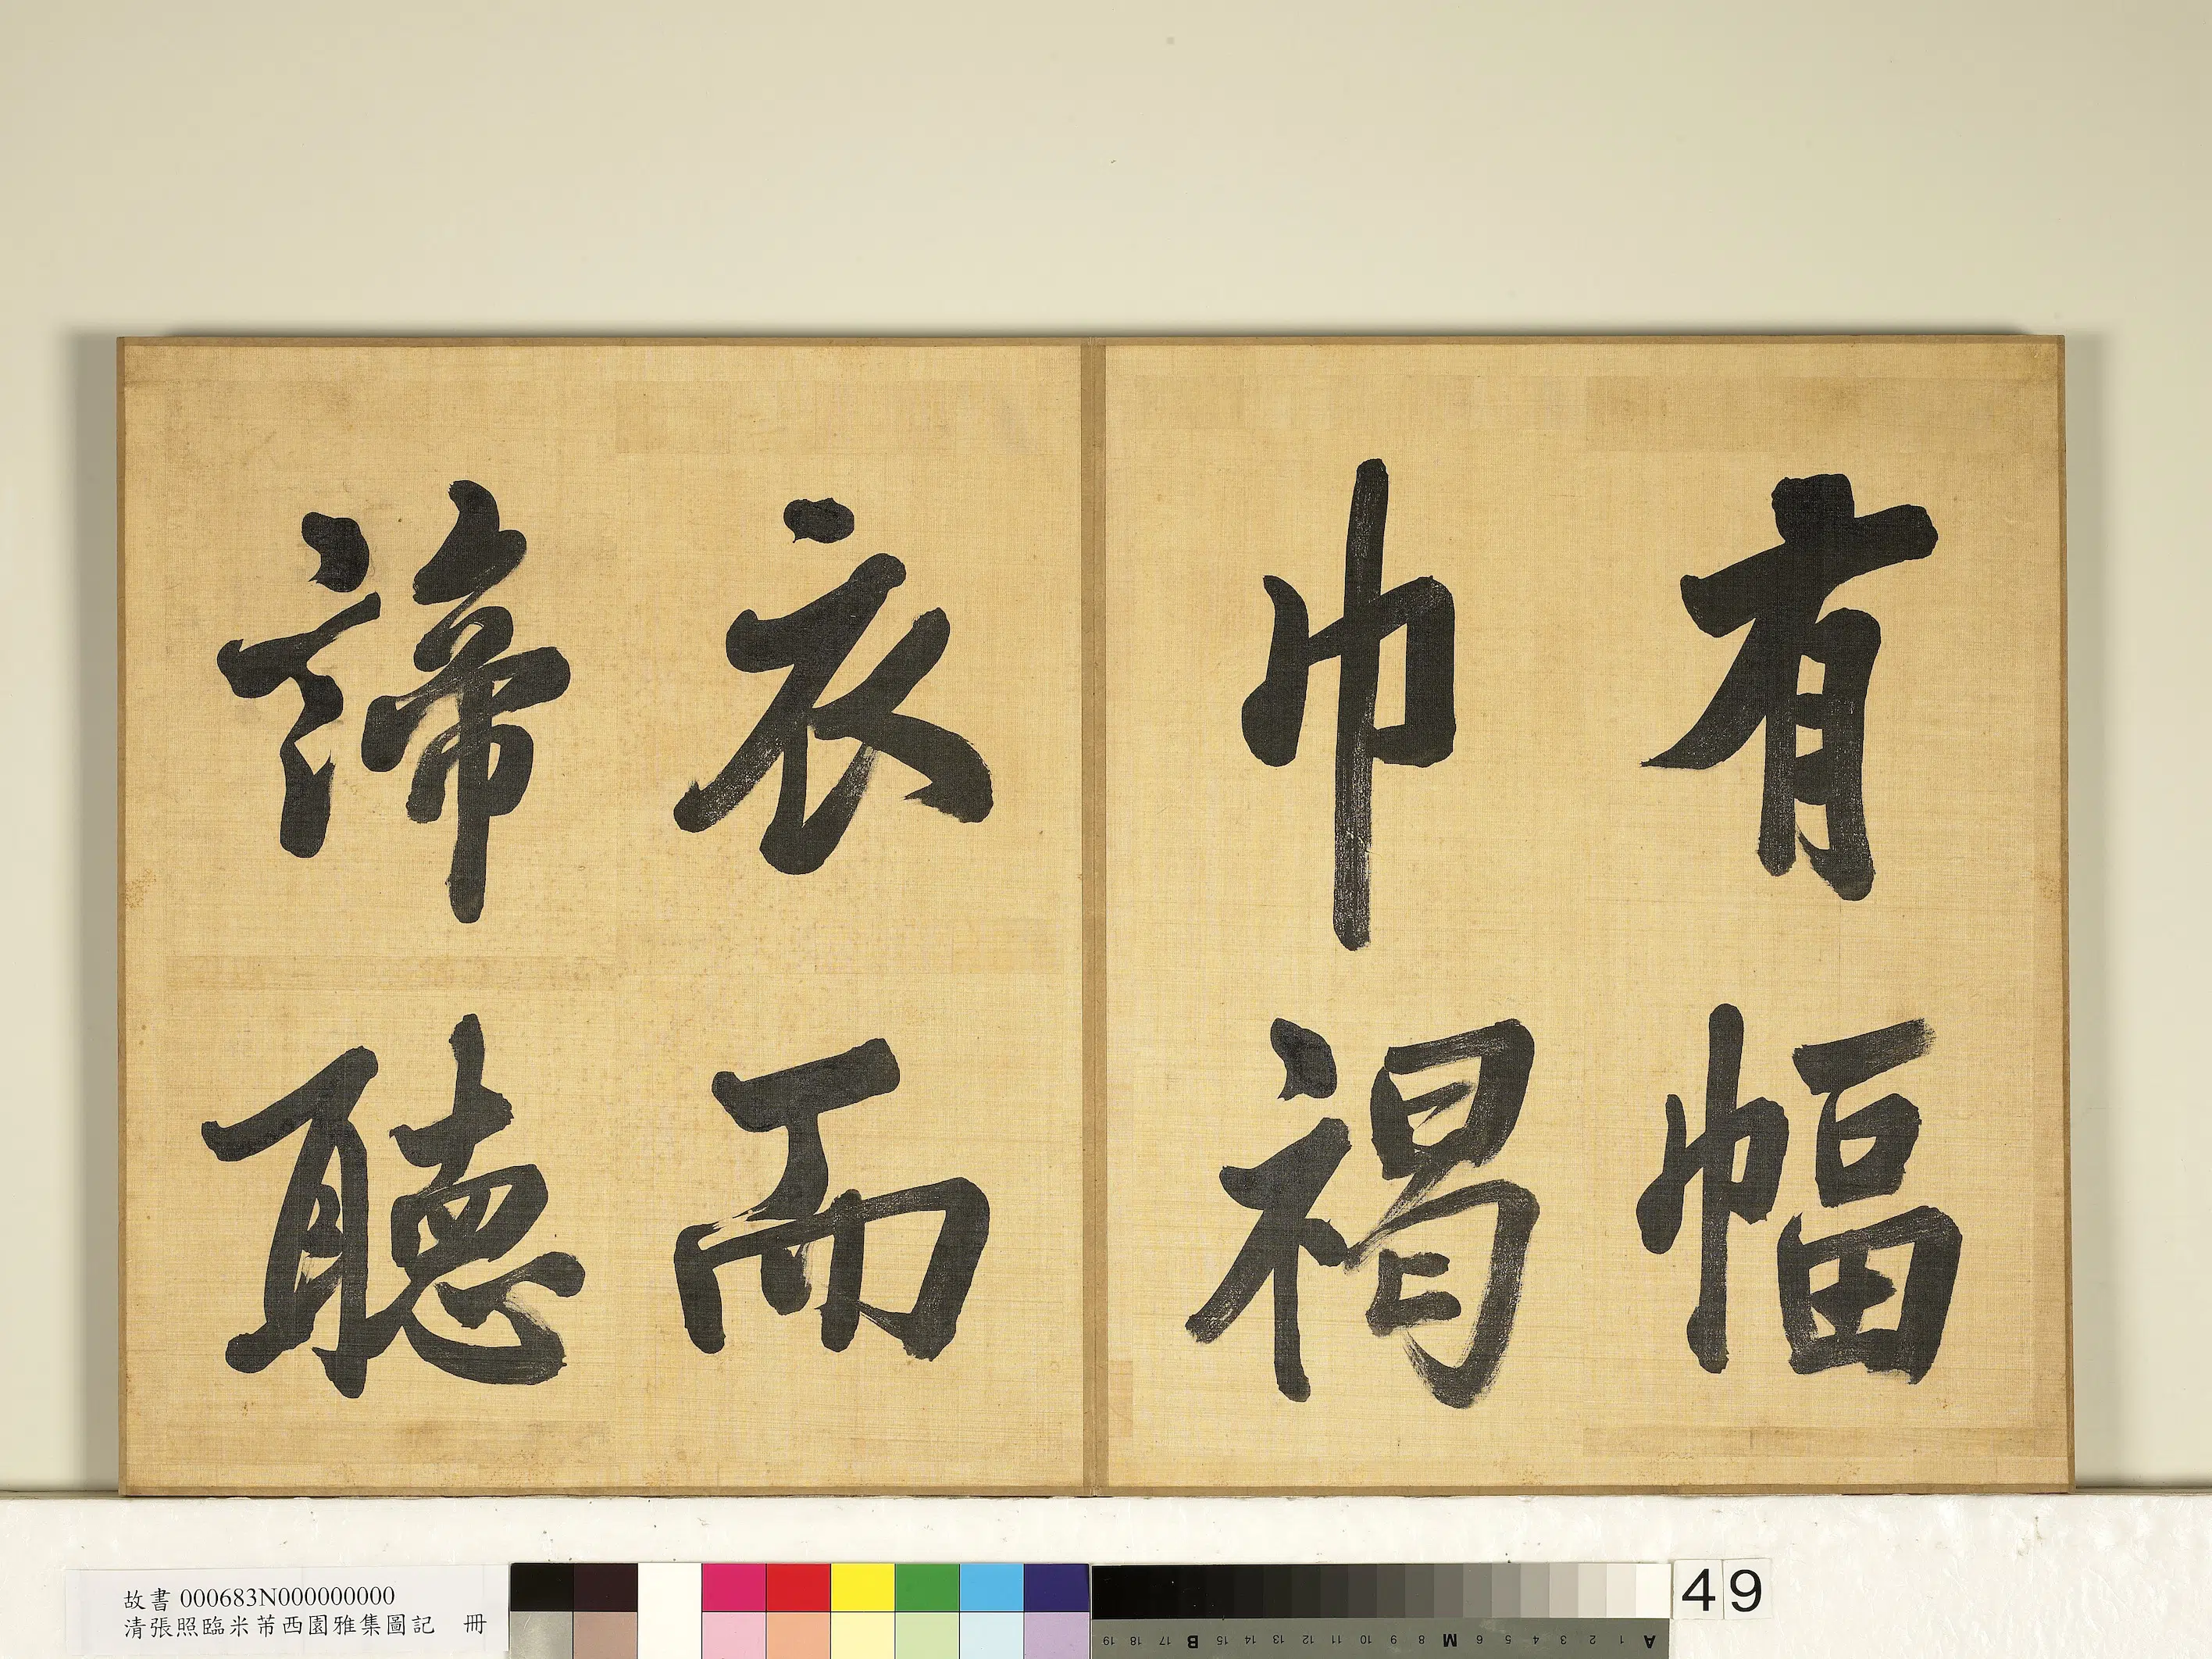 有幅
巾褐
衣而
諦聽
故書 000683N000000000
清張照臨米芾西園雅集圖記 冊
49
A 1 2 3 4 5 6 M 8 9 10 11 12 13 14 15 B 17 18 19